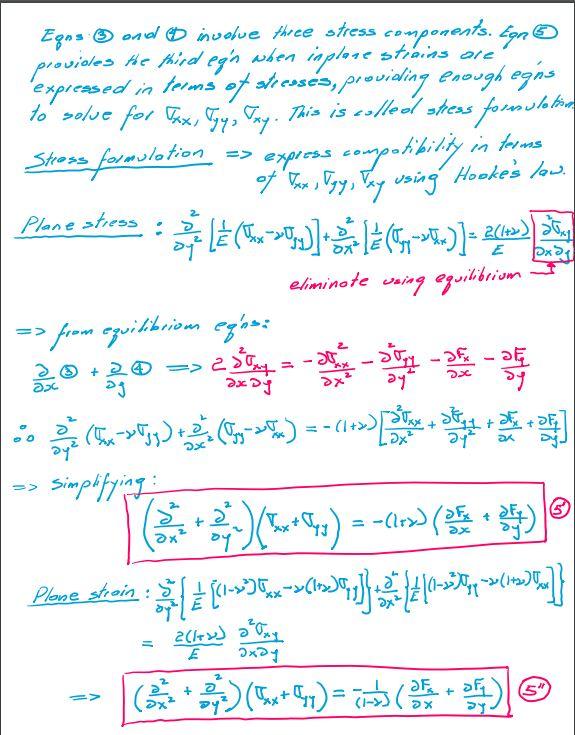 Eqns ③ and ④ involve three stress components. Eqn ⑤
provides the third eq'n when inplane strains are
expressed in terms of stresses, providing enough eq'ns
to solve for σxx, σyy, σxy. This is called stress formulation.
Stress formulation => express compatibility in terms
of σxx, σyy, σxy using Hooke's law.
Plane stress : ∂²/∂y² [1/E (σxx-νσyy)] + ∂²/∂x² [1/E (σyy-νσxx)] = 2(1+ν)/E ∂²σxy/∂x∂y
eliminate using equilibrium
=> from equilibrium eq'ns:
∂/∂x ③ + ∂/∂y ④ => 2 ∂²σxy/∂x∂y = -∂²σxx/∂x² - ∂²σyy/∂y² - ∂Fx/∂x - ∂Fy/∂y
∴ ∂²/∂y² (σxx-νσyy) + ∂²/∂x² (σyy-νσxx) = -(1+ν) [∂²σxx/∂x² + ∂²σyy/∂y² + ∂Fx/∂x + ∂Fy/∂y]
=> simplifying:
(∂²/∂x² + ∂²/∂y²)(σxx+σyy) = -(1+ν) (∂Fx/∂x + ∂Fy/∂y) 5'
Plane strain : ∂²/∂y² {1/E [(1-ν²)σxx-ν(1+ν)σyy]} + ∂²/∂x² {1/E [(1-ν²)σyy-ν(1+ν)σxx]}
= 2(1+ν)/E ∂²σxy/∂x∂y
=> (∂²/∂x² + ∂²/∂y²)(σxx+σyy) = -1/(1-ν) (∂Fx/∂x + ∂Fy/∂y) 5"